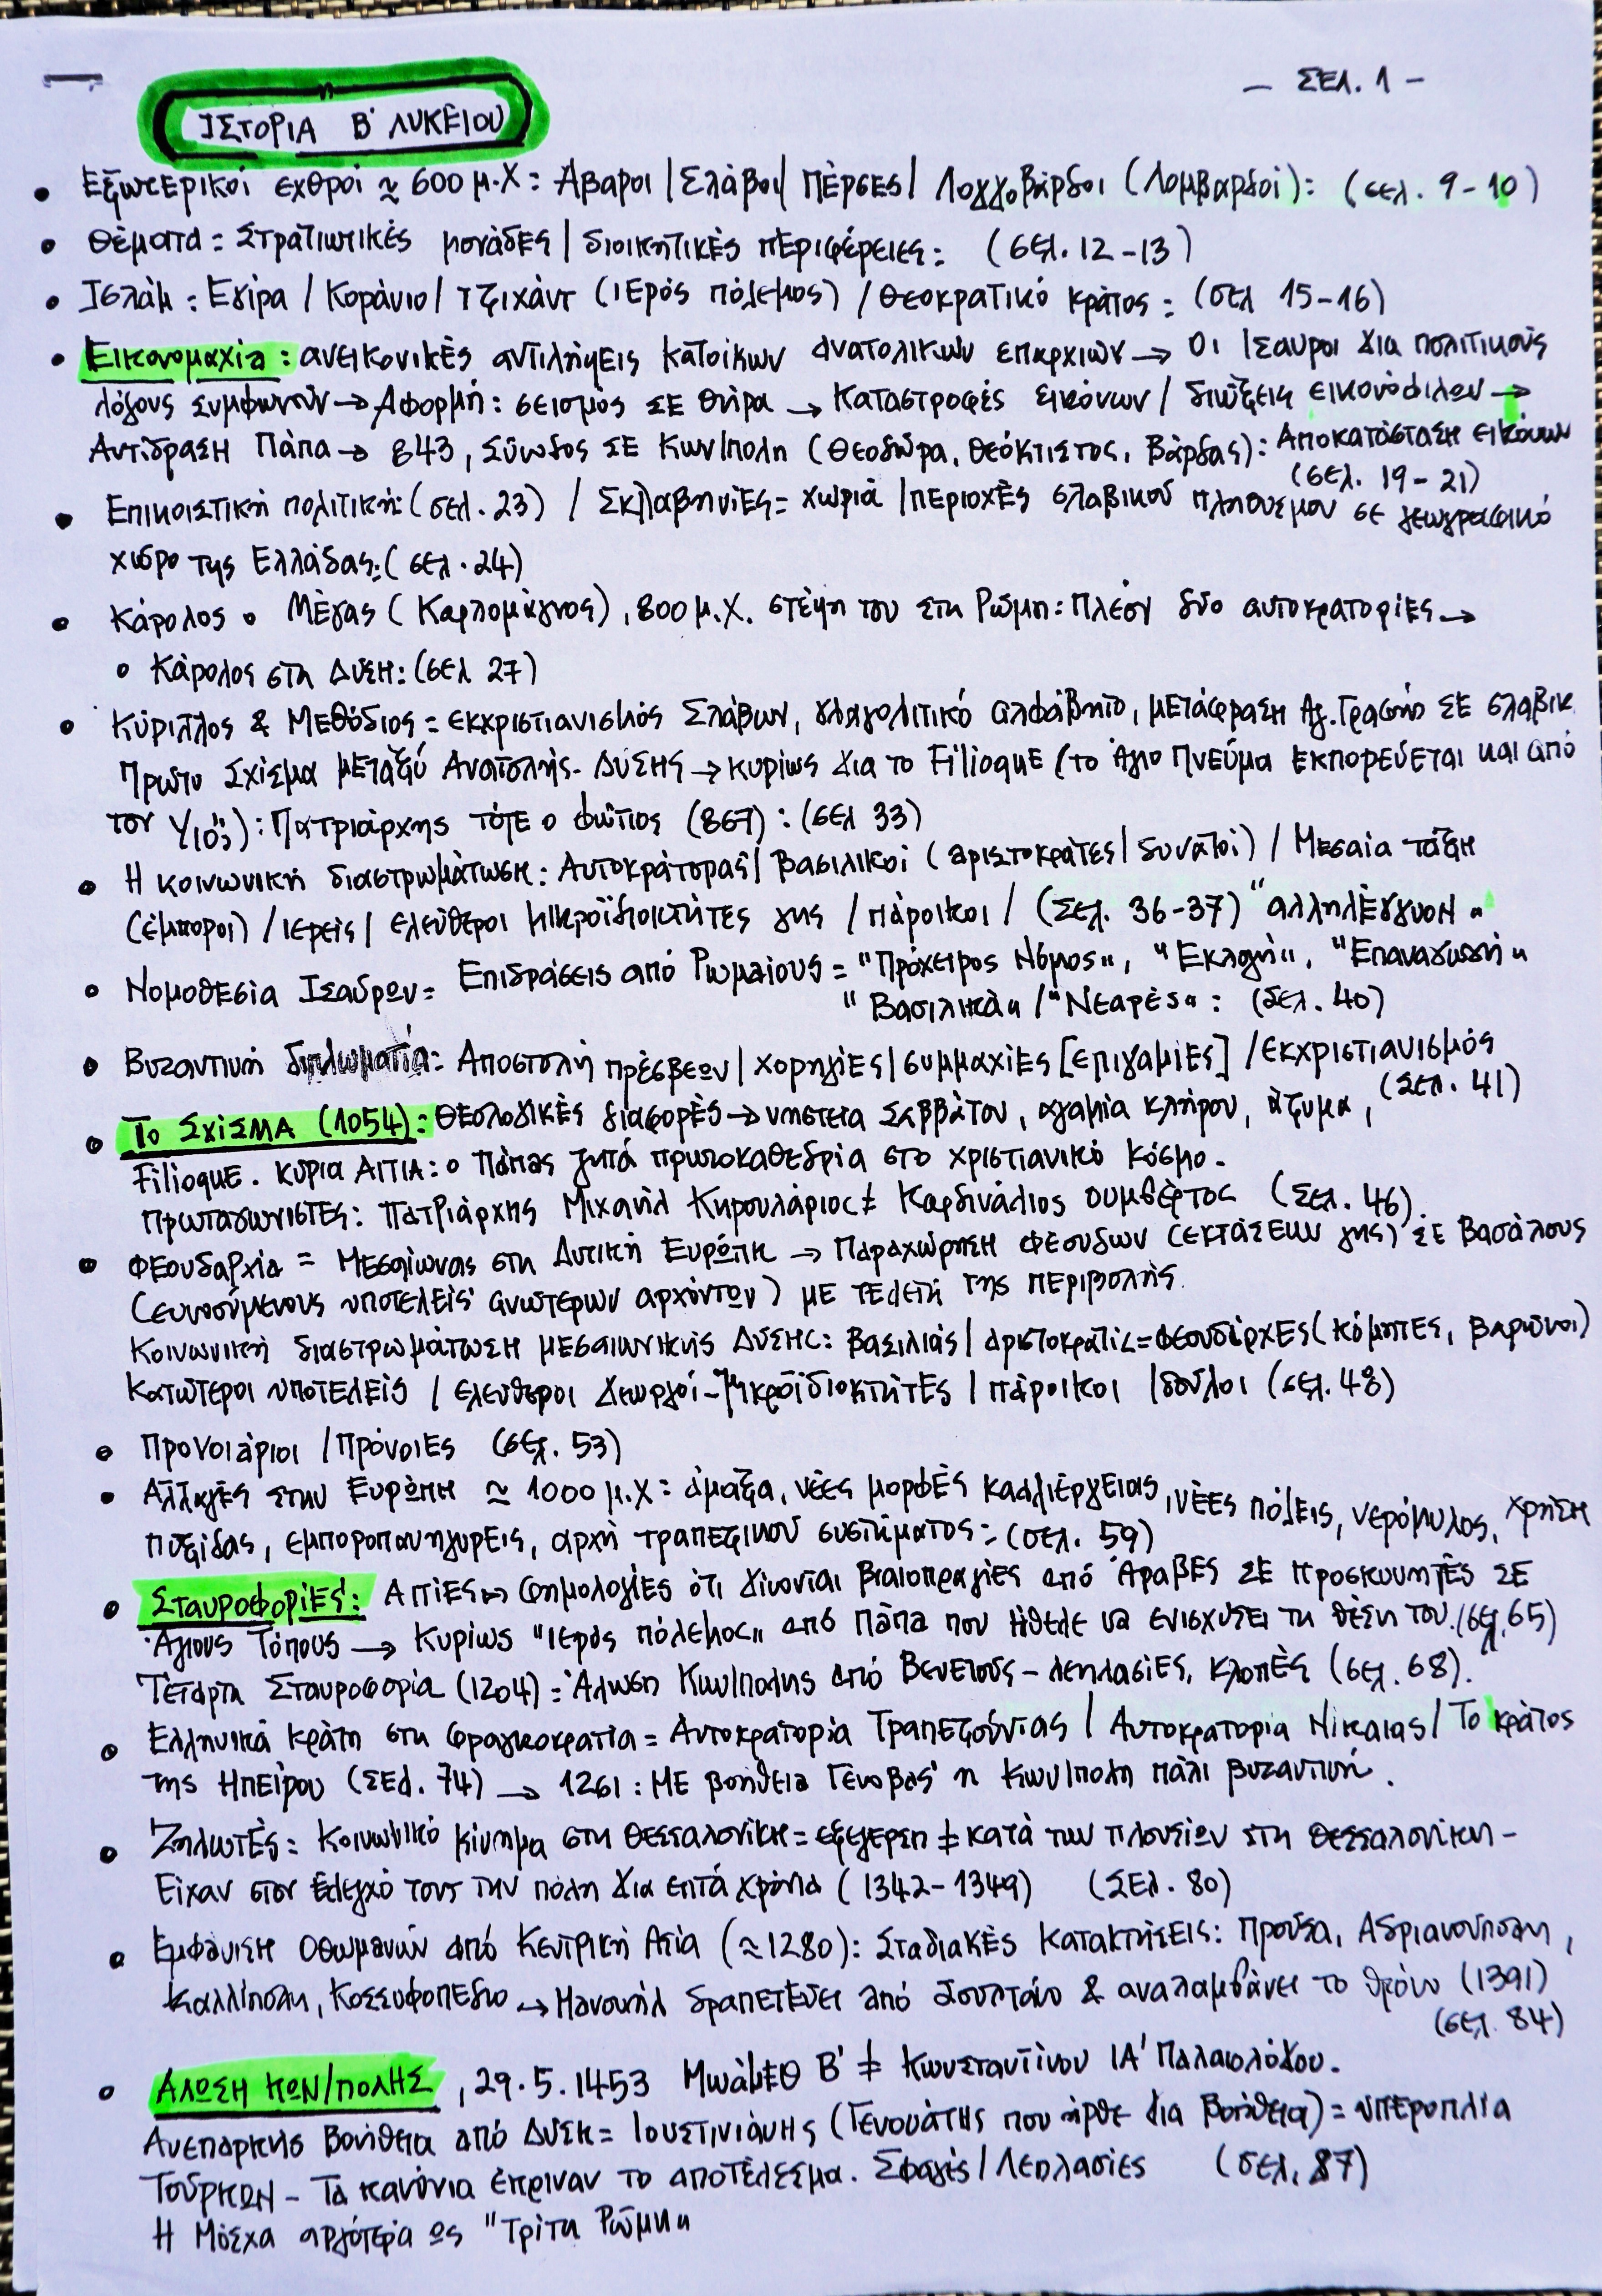 - ΣΕΛ. 1 -
ΙΣΤΟΡΙΑ Β' ΛΥΚΕΙΟΥ
• Εξωτερικοί εχθροί ≈ 600 μ.Χ = Άβαροι / Σλάβοι / Πέρσες / Λογγοβάρδοι (Λομβαρδοί): (σελ. 9-10)
• Θέματα = Στρατιωτικές μονάδες / διοικητικές περιφέρειες: (σελ. 12-13)
• Ισλάμ: Εγίρα / Κοράνιο / τζιχάντ (ιερός πόλεμος) / Θεοκρατικό κράτος: (σελ 15-16)
• Εικονομαχία: ανεικονικές αντιλήψεις κατοίκων ανατολικών επαρχιών → Οι Ίσαυροι για πολιτικούς
λόγους συμφωνούν → Αφορμή: σεισμός σε Θήρα → Καταστροφές εικόνων / διώξεις εικονόφιλων →
Αντίδραση Πάπα → 843, Σύνοδος σε Κων/πολη (Θεοδώρα, Θεόκτιστος, Βάρδας): Αποκατάσταση εικόνων
(σελ. 19-21)
• Εποικιστική πολιτική: (σελ. 23) / Σκλαβηνίες = χωριά / περιοχές σλαβικού πληθυσμού σε γεωγραφικό
χώρο της Ελλάδας: (σελ. 24)
• Κάρολος ο Μέγας (Καρλομάγνος), 800 μ.Χ. στέψη του στη Ρώμη: Πλέον δύο αυτοκρατορίες →
ο Κάρολος στη Δύση: (σελ 27)
• Κύριλλος & Μεθόδιος = εκχριστιανισμός Σλάβων, γλαγολιτικό αλφάβητο, μετάφραση Αγ. Γραφής σε σλαβικ
Πρώτο Σχίσμα μεταξύ Ανατολής - Δύσης → κυρίως για το Filioque (το Άγιο Πνεύμα εκπορεύεται και από
τον Υιό;): Πατριάρχης τότε ο Φώτιος (867): (σελ 33)
• Η κοινωνική διαστρωμάτωση: Αυτοκράτορας / Βασιλικοί (αριστοκράτες / δυνατοί) / Μεσαία τάξη
(έμποροι) / ιερείς / ελεύθεροι μικροϊδιοκτήτες γης / πάροικοι / (Σελ. 36-37) "αλληλέγγυον"
• Νομοθεσία Ισαύρων = Επιδράσεις από Ρωμαίους = "Πρόχειρος Νόμος", "Εκλογή", "Επαναγωγή"
"Βασιλικά" / "Νεαρές": (Σελ. 40)
• Βυζαντινή διπλωματία: Αποστολή πρέσβεων / χορηγίες / συμμαχίες [επιγαμίες] / εκχριστιανισμός
(Σελ. 41)
• Το Σχίσμα (1054): Θεολογικές διαφορές → νηστεία Σαββάτου, αγαμία κλήρου, άζυμα,
Filioque. Κύρια Αιτία: ο Πάπας ζητά πρωτοκαθεδρία στο χριστιανικό κόσμο.
Πρωταγωνιστές: Πατριάρχης Μιχαήλ Κηρουλάριος ≠ Καρδινάλιος Ουμβέρτος (Σελ. 46).
• Φεουδαρχία = Μεσαίωνας στη Δυτική Ευρώπη → Παραχώρηση φέουδων (εκτάσεων γης) σε Βασάλους
(ευνοούμενους υποτελείς ανώτερων αρχόντων) με τελετή της περιβολής.
Κοινωνική διαστρωμάτωση μεσαιωνικής Δύσης: Βασιλιάς / αριστοκρατία = Φεουδάρχες (κόμητες, βαρώνοι)
κατώτεροι υποτελείς / ελεύθεροι γεωργοί - μικροϊδιοκτήτες / πάροικοι / δούλοι (σελ. 48)
• Προνοιάριοι / Πρόνοιες (σελ. 53)
• Αλλαγές στην Ευρώπη ≈ 1000 μ.Χ = άμαξα, νέες μορφές καλλιέργειας, νέες πόλεις, νερόμυλος, χρήση
πυξίδας, εμποροπανηγύρεις, αρχή τραπεζικού συστήματος = (σελ. 59)
• Σταυροφορίες: Αιτίες → Φημολογίες ότι γίνονται βιαιοπραγίες από Άραβες σε προσκυνητές σε
Άγιους Τόπους → Κυρίως "ιερός πόλεμος" από Πάπα που ήθελε να ενισχύσει τη θέση του. (σελ. 65)
Τέταρτη Σταυροφορία (1204) = Άλωση Κων/πολης από Βενετούς - λεηλασίες, κλοπές (σελ. 68).
• Ελληνικά κράτη στη φραγκοκρατία = Αυτοκρατορία Τραπεζούντας / Αυτοκρατορία Νίκαιας / Το κράτος
της Ηπείρου (Σελ. 74) → 1261: Με βοήθεια Γένοβας η Κων/πολη πάλι βυζαντινή.
• Ζηλωτές: Κοινωνικό κίνημα στη Θεσσαλονίκη = εξέγερση ≠ κατά των πλουσίων στη Θεσσαλονίκη -
Είχαν στον έλεγχό τους την πόλη για επτά χρόνια (1342-1349) (Σελ. 80)
• Εμφάνιση Οθωμανών από Κεντρική Ασία (≈1280): Σταδιακές Κατακτήσεις: Προύσα, Αδριανούπολη,
Καλλίπολη, Κοσσυφοπέδιο → Μανουήλ δραπετεύει από Σουλτάνο & αναλαμβάνει το θρόνο (1391)
(σελ. 84)
• ΑΛΩΣΗ ΚΩΝ/ΠΟΛΗΣ, 29.5.1453 Μωάμεθ Β' ≠ Κωνσταντίνου ΙΑ' Παλαιολόγου.
Ανεπαρκής Βοήθεια από Δύση = Ιουστινιάνης (Γενουάτης που ήρθε για βοήθεια) = υπεροπλία
Τούρκων - Τα κανόνια έκριναν το αποτέλεσμα. Σφαγές / Λεηλασίες (σελ. 87)
Η Μόσχα αργότερα ως "Τρίτη Ρώμη"